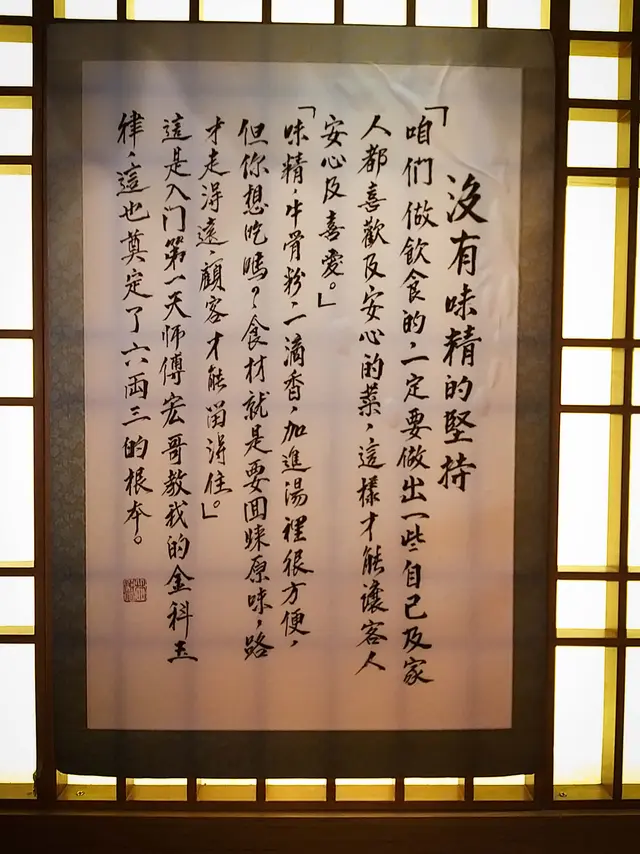 沒有味精的堅持
「咱们做飲食的,一定要做出一些自己及家
人都喜歡及安心的菜,這樣才能讓客人
安心及喜愛。」
「味精,牛骨粉,一滴香,加進湯裡很方便,
但你想吃嗎?食材就是要回味原味,路
才走得遠,顧客才能留得住。」
這是入门第一天師傅宏哥教我的金科玉
律,這也奠定了六兩三的根本。